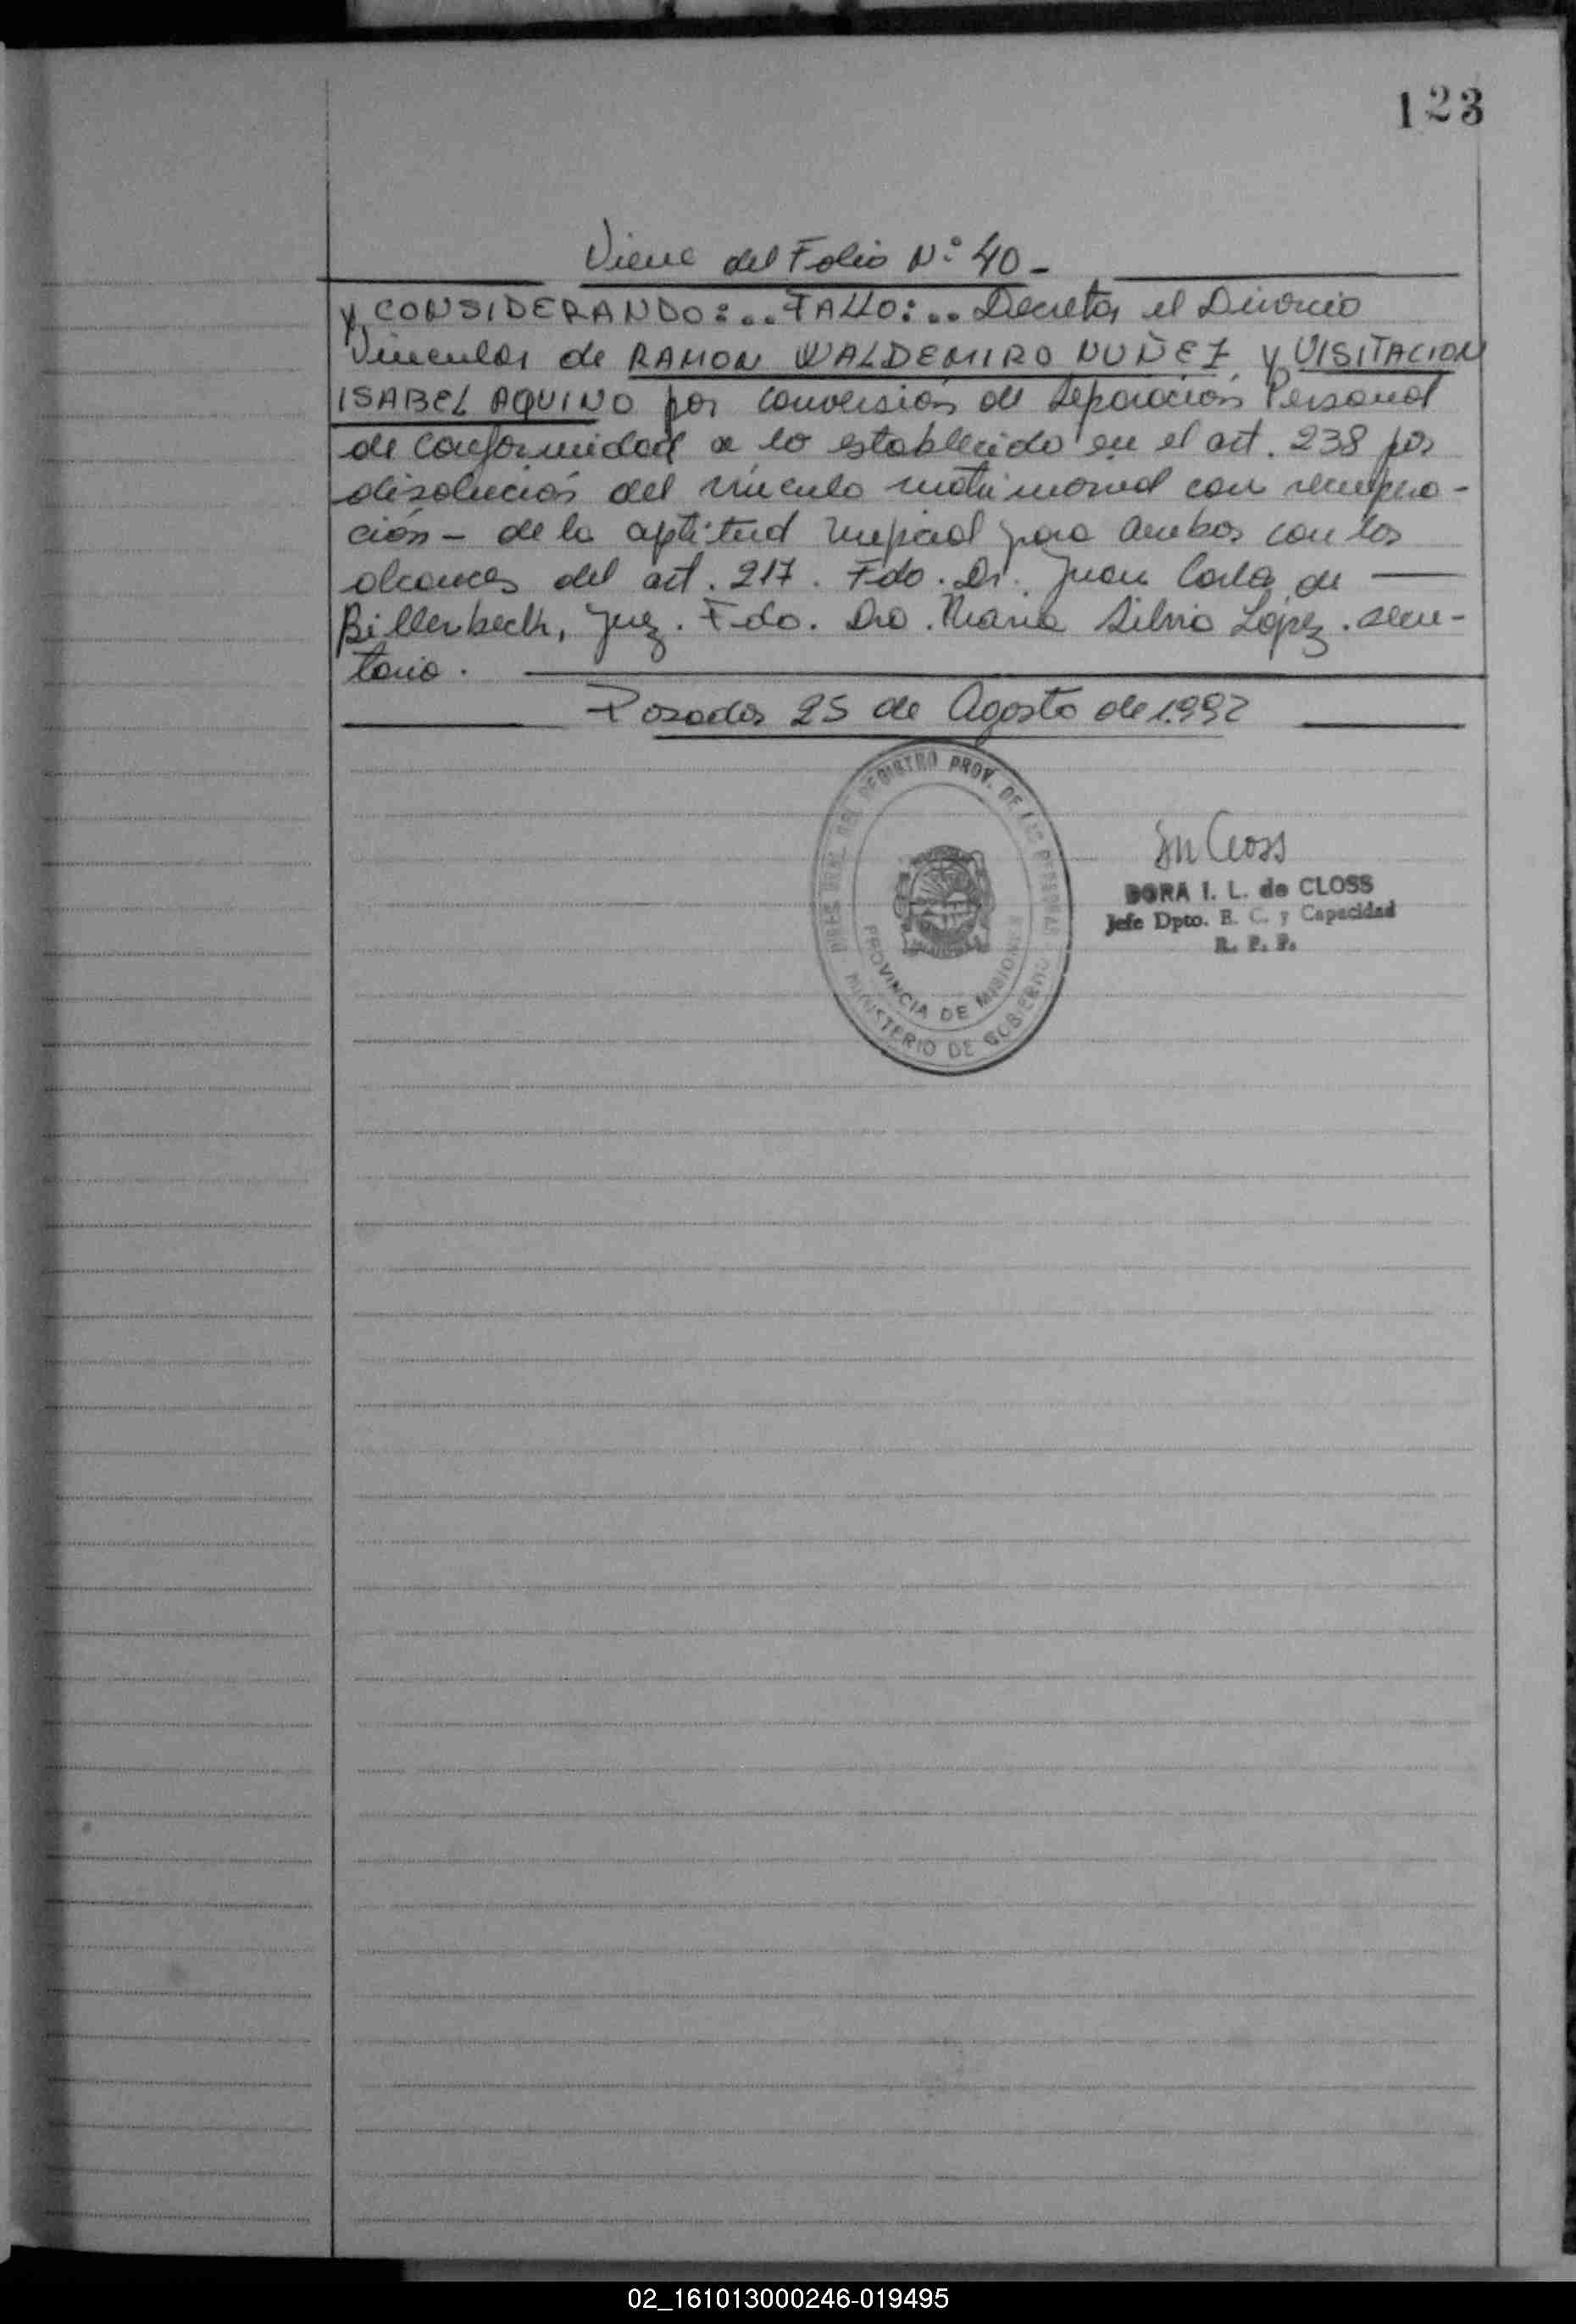 123
Viene del Folio Nº 40-
y CONSIDERANDO:.. FALLO:.. Decretar el Divorcio
Vincular de RAMON WALDEMIRO NUÑEZ y VISITACION
ISABEL AQUINO por conversión de Separación Personal
de conformidad a lo establecido en el art. 238 por
disolución del vínculo matrimonial con recupera-
ción - de la aptitud nupcial para ambos con los
alcances del art. 217. Fdo. Dr. Juan Carlos de
Billerbeck, Juez. Fdo. Dra. Maria Silvia López. secre-
taria.
Posadas 25 de Agosto de 1.992
REGISTRO PROV. DE LAS PERSONAS
PROVINCIA DE MISIONES
MINISTERIO DE GOBIERNO
DORA I. L. de CLOSS
Jefe Dpto. E. C. y Capacidad
R. P. P.
02_161013000246-019495